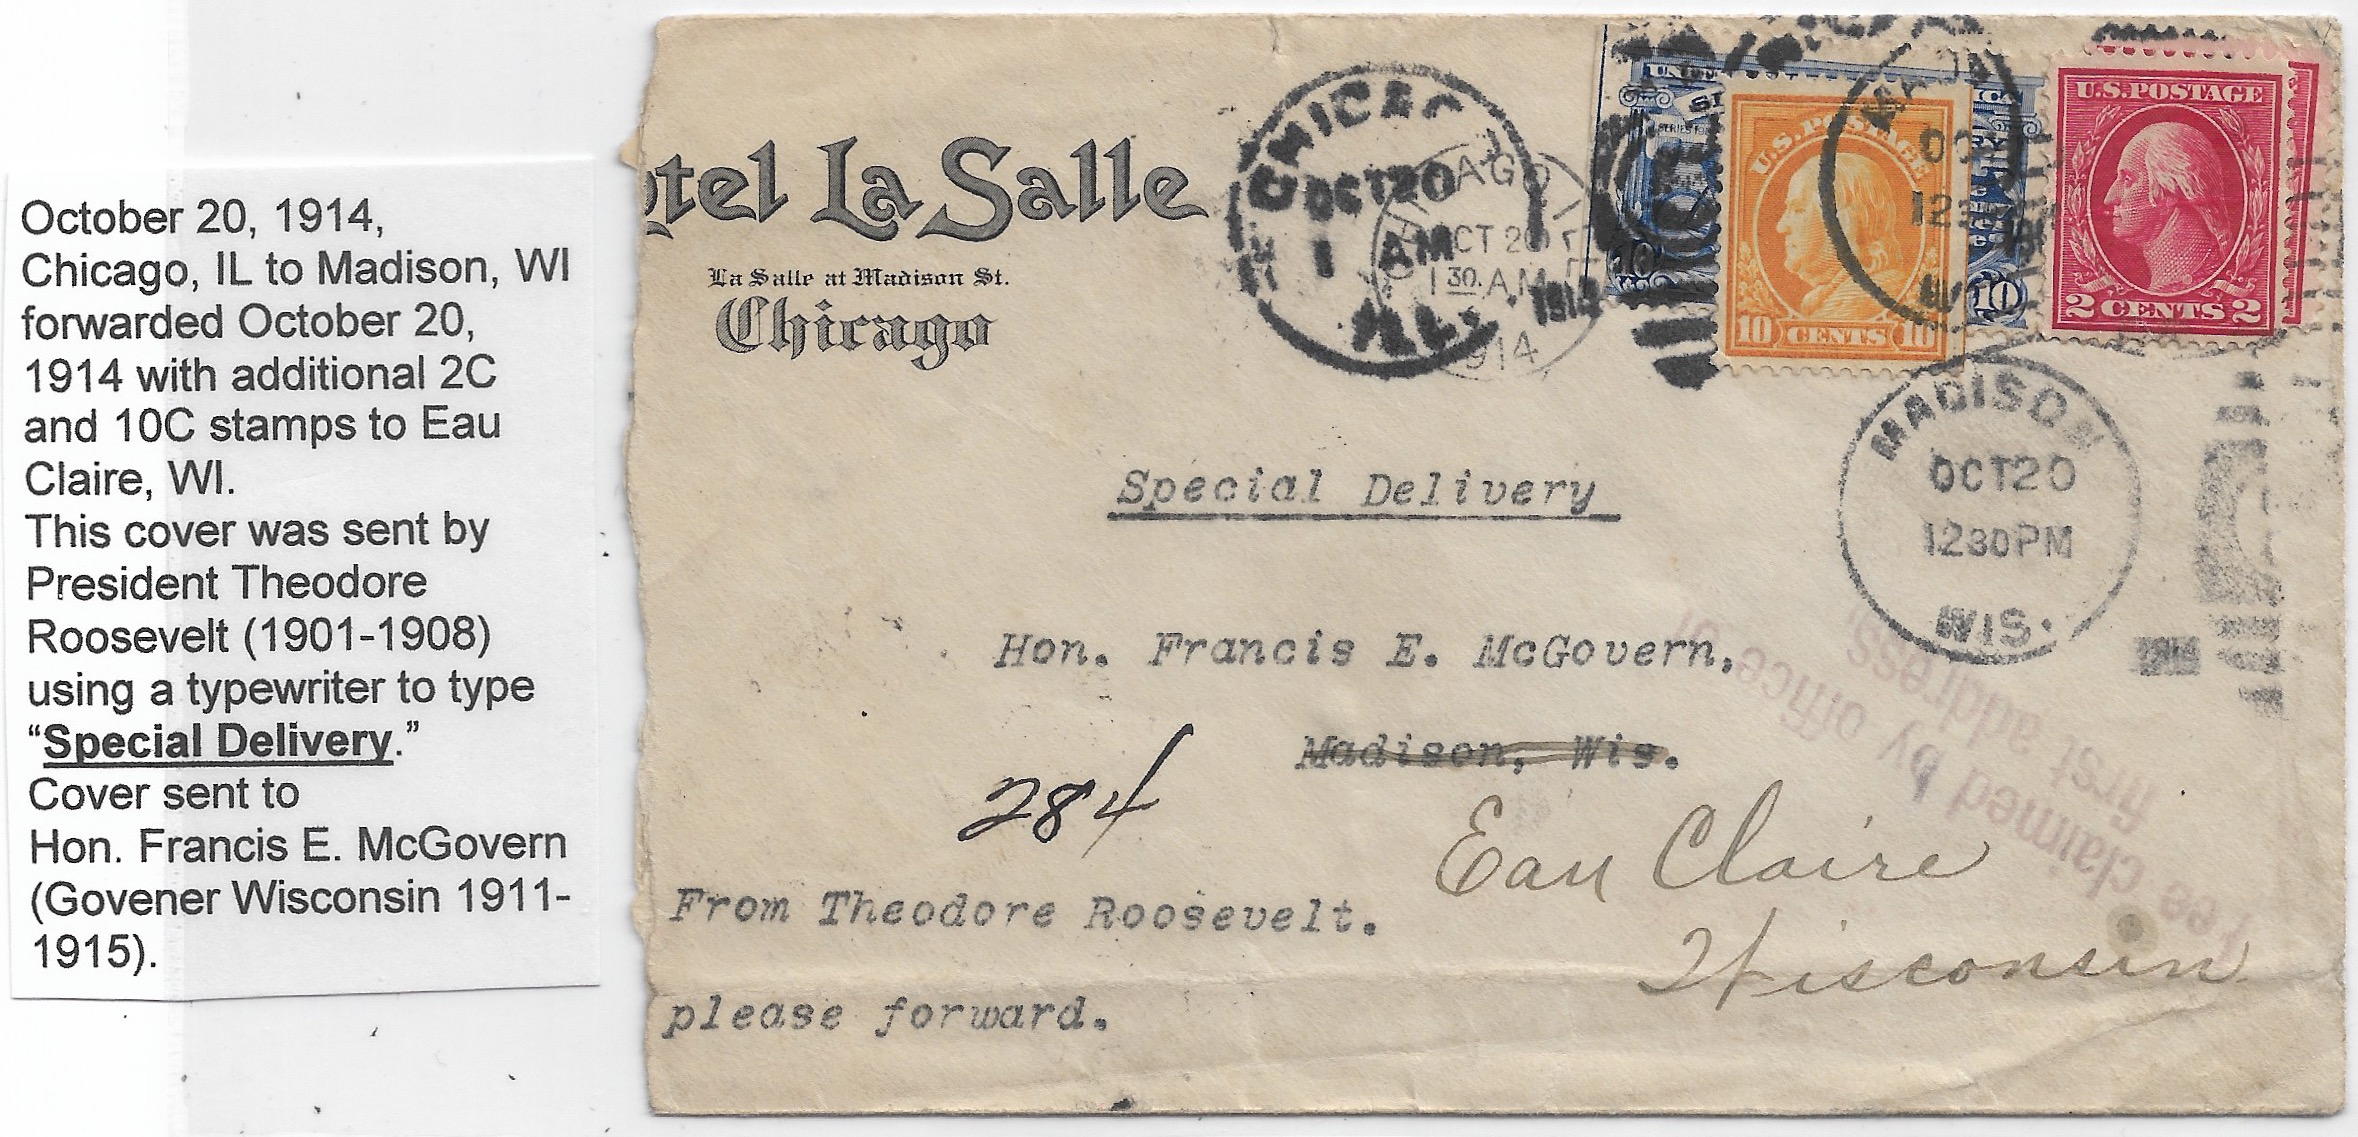 October 20, 1914,
Chicago, IL to Madison, WI
forwarded October 20,
1914 with additional 2C
and 10C stamps to Eau
Claire, WI.
This cover was sent by
President Theodore
Roosevelt (1901-1908)
using a typewriter to type
“Special Delivery.”
Cover sent to
Hon. Francis E. McGovern
(Govener Wisconsin 1911-
1915).
otel La Salle
La Salle at Madison St.
Chicago
CHICAGO
OCT 20
1 AM
ILL. 1914
OCT 20
1 30 AM
1914
U.S. POSTAGE
10 CENTS 10
10
U.S. POSTAGE
2 CENTS 2
MADISON
OCT 20
12 30 PM
WIS.
1914
Special Delivery
Hon. Francis E. McGovern,
Madison, Wis.
284
Eau Claire
Wisconsin
From Theodore Roosevelt.
please forward.
Fee claimed by office of
first address